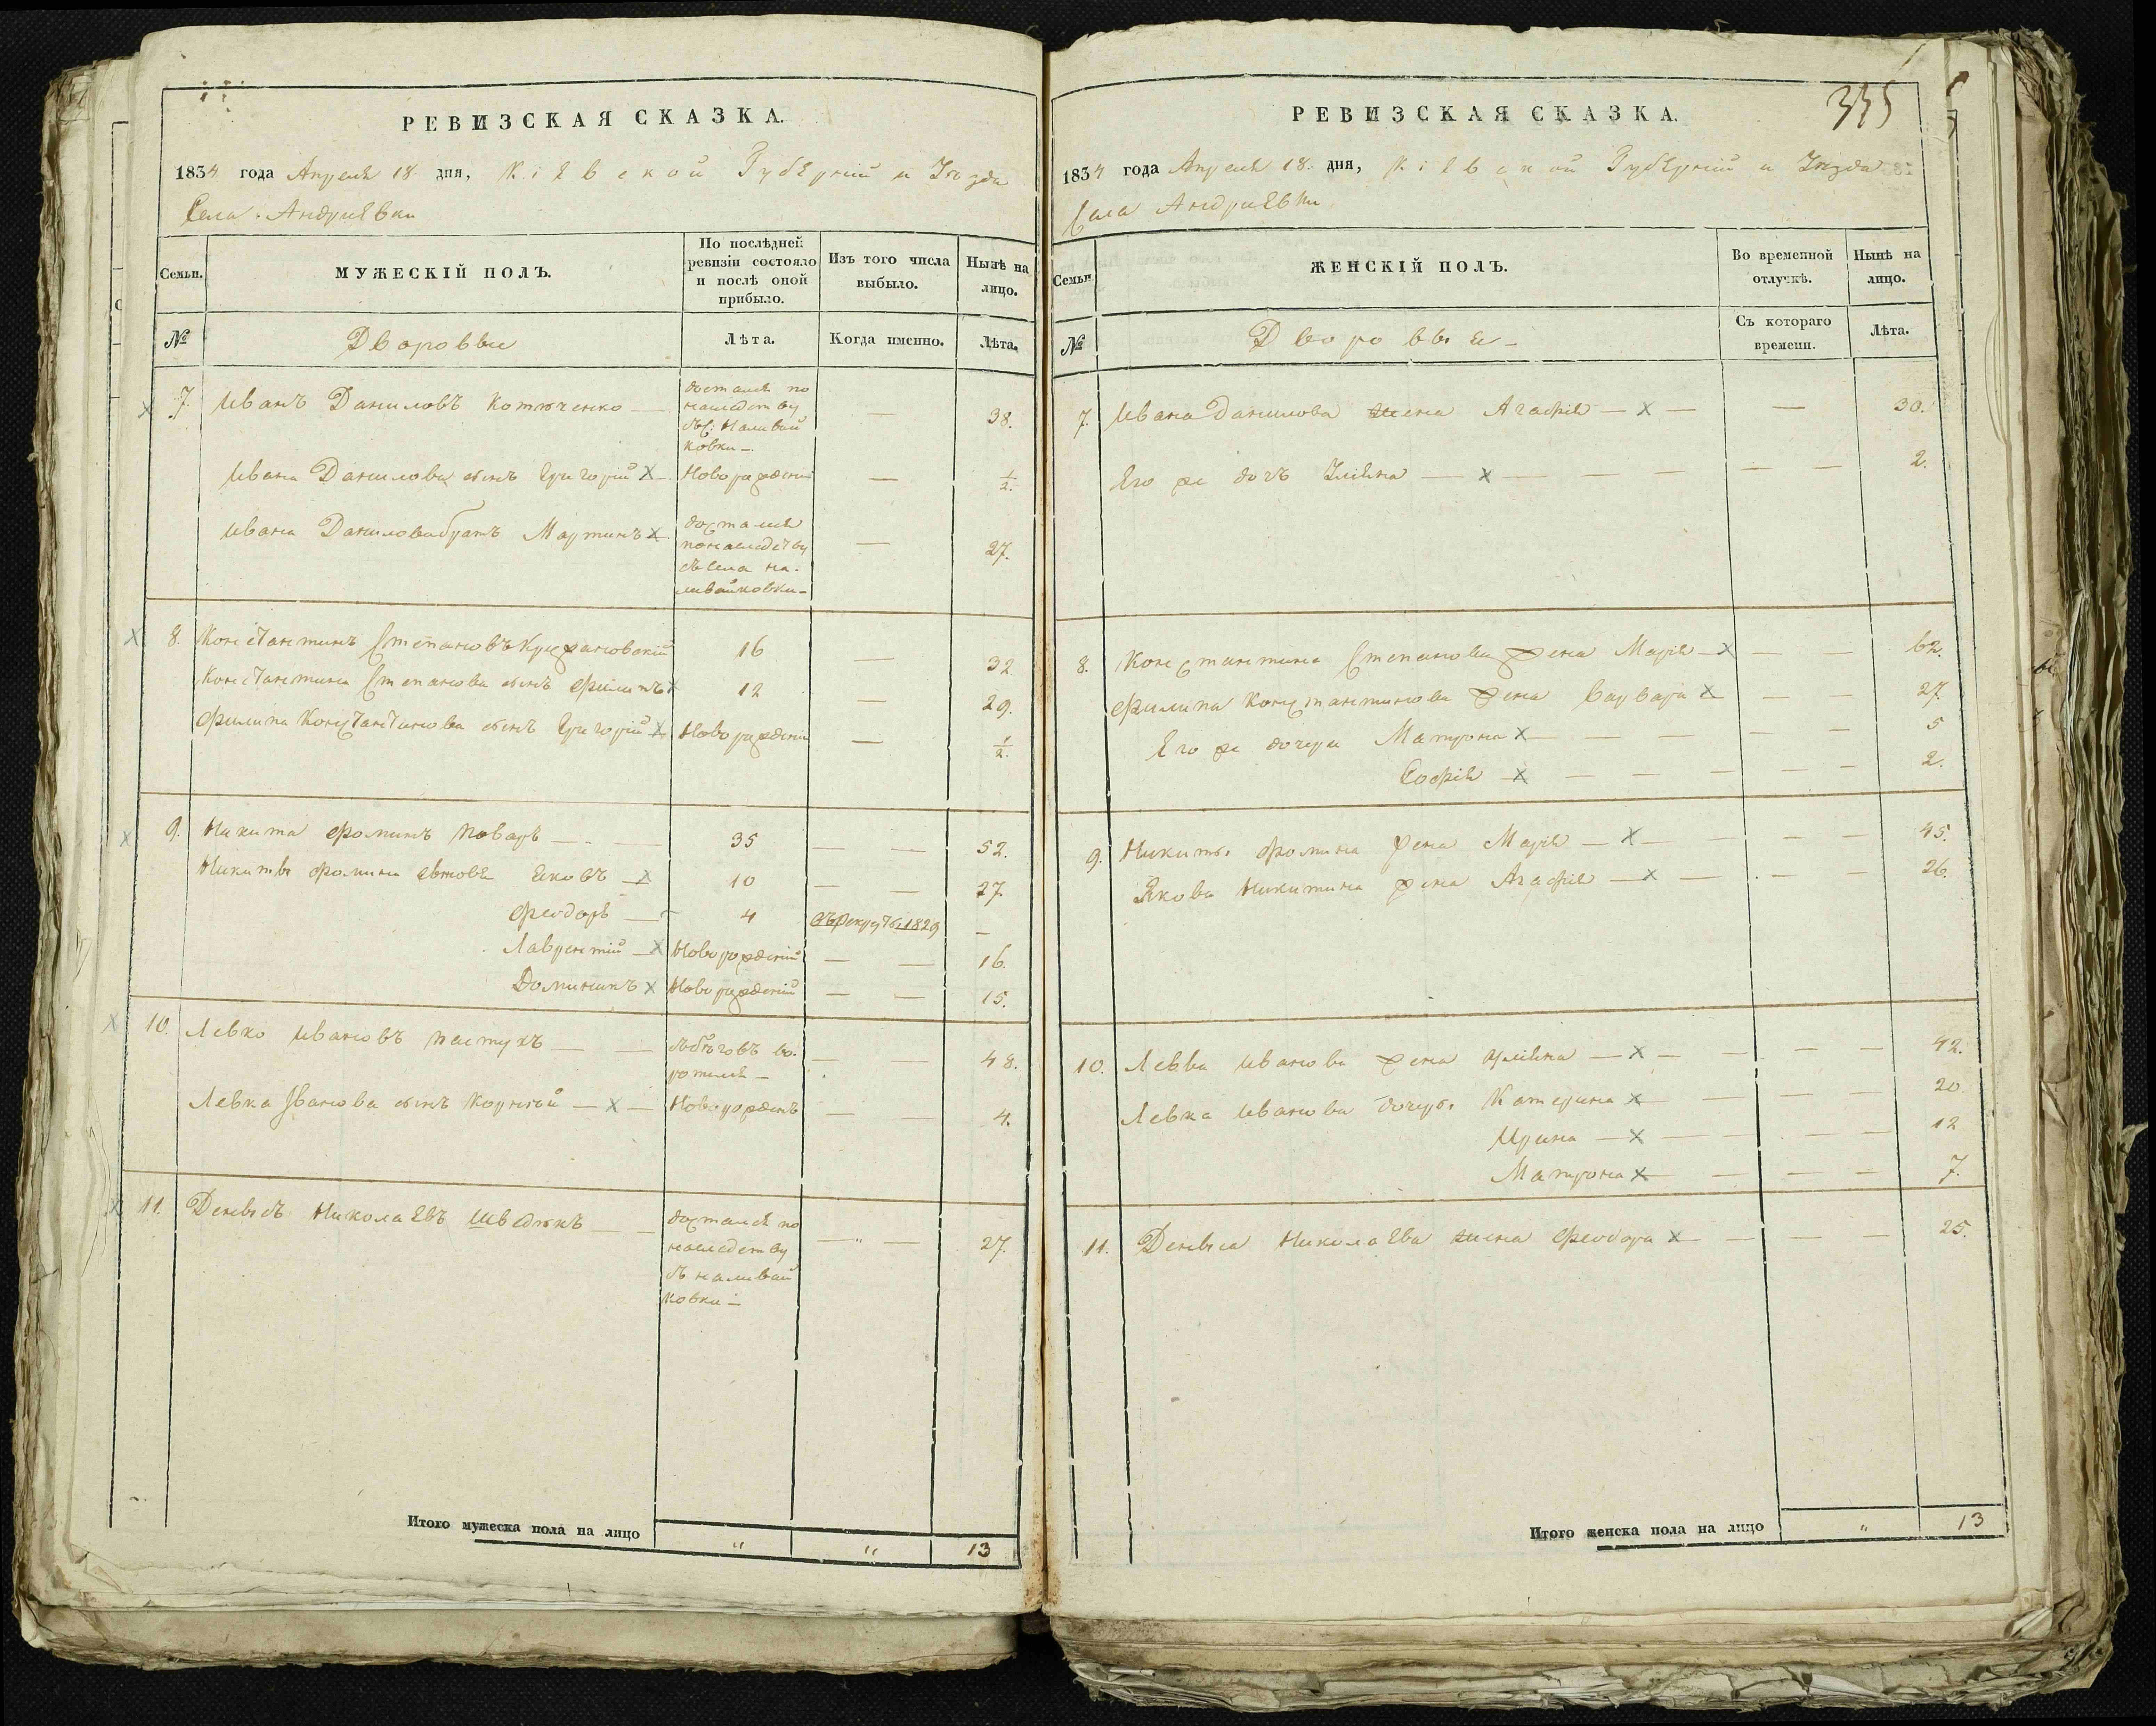 РЕВИЗСКАЯ СКАЗКА.
1834 года Апреля 18 дня, Кіевской Губерніи и Уѣзда
Села Андріевки
Семьи.
МУЖЕСКІЙ ПОЛЪ.
По послѣдней ревизіи состояло и послѣ оной прибыло.
Изъ того числа выбыло.
Нынѣ на лицо.
№
Дворовые
Лѣта.
Когда именно.
Лѣта.
7. Иванъ Даниловъ Котюченко — достался по — 38.
наследству
съ С: Наливай
ковки —
Ивана Данилова сынъ Григорій X Новорожденій — 1/2.
Ивана Данилова братъ Мартинъ X достался — 27.
понаследству
съ Села на-
ливайковки —
8. Константинъ Степановъ 16 — 32
Константина Степанова сынъ Филипъ X 12 — 29.
Филипа Константинова сынъ Григорій X Новорожденій — 1/2.
9. Никита Фоминъ Поваръ — 35 — — 52.
Никиты Фомина сыновья Яковъ X 10 — — 27.
Феодоръ — 4 въ рекруты 1829 —
Лаврентій — X Новорожденій — — 16.
Доминикъ X Новорожденій — — 15.
10. Левко Ивановъ пастухъ — — съ бѣговъ во- — — 48.
ротился —
Левка Иванова сынъ Корній — X — Новорожденъ — — 4.
11. Денисъ Николаевъ Шведюкъ — достался по — " — 27.
наследству
съ наливай
ковки —
Итого мужеска пола на лицо " " 13
РЕВИЗСКАЯ СКАЗКА.
335
1834 года Апреля 18. дня, Кіевской Губерніи и Уѣзда
Села Андріевки
Семьи.
ЖЕНСКІЙ ПОЛЪ.
Во временной отлучкѣ.
Нынѣ на лицо.
№
Дворовые
Съ котораго времени.
Лѣта.
7. Ивана Данилова жена Агафія — X — — 30.
Его же дочь — X — — — — — 2.
8. Константина Степанова жена Марія — X — — 62.
Филипа Константинова жена Варвара X — — 27.
Его же дочери Матрона X — — — — — 5
Софія X — — — — — — 2.
9. Никиты Фомина жена Марія — X — — — — 45.
Якова Никитина жена Агафія — X — — — — 26.
10. Левка Иванова жена — X — — — — 42.
Левка Иванова дочери Катерина X — — — — 20
Ирина — X — — — — — 12
Матрона X — — — — 7.
11. Дениса Николаева жена Феодора X — — — — 25.
Итого женска пола на лицо " 13